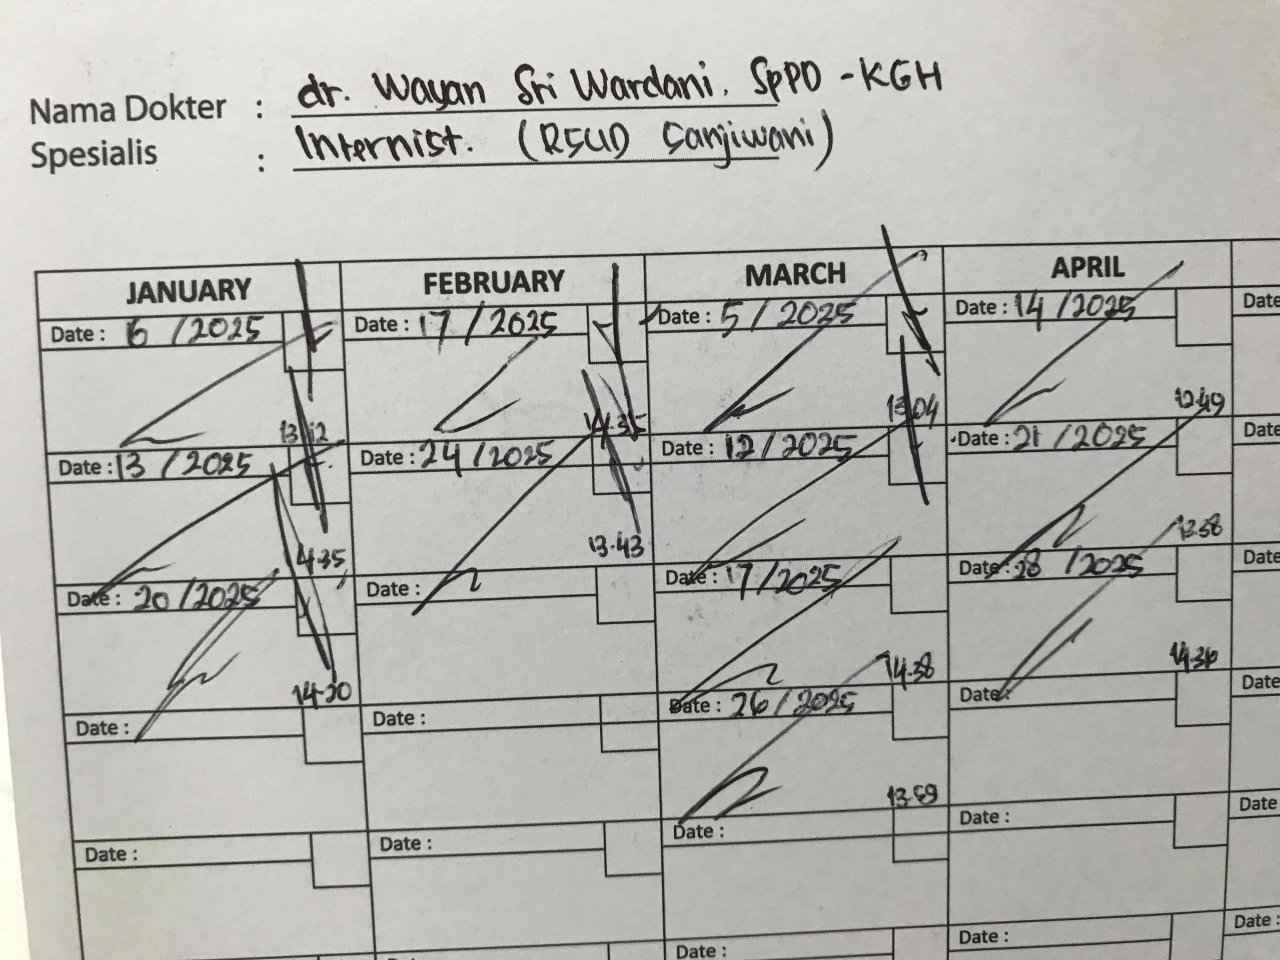 Nama Dokter : dr. Wayan Sri Wardani. SpPD - KGH
Spesialis : Internist. (RSUD Sanjiwani)
JANUARY FEBRUARY MARCH APRIL
Date : 6 /2025 Date : 17 / 2025 Date : 5 / 2025 Date : 14 /2025 Date
13.12 14.35 13.04 12.49
Date : 13 /2025 Date : 24 /2025 Date : 12/2025 Date : 21 /2025 Date
14.35 13.43 12.58
Date : 20 /2025 Date : Date : 17/2025 Date : 28 /2025 Date
14.20 14.38 14.36
Date : Date : Date : 26 / 2025 Date : Date
13.59
Date : Date : Date : Date : Date
Date : Date : Date : Date :